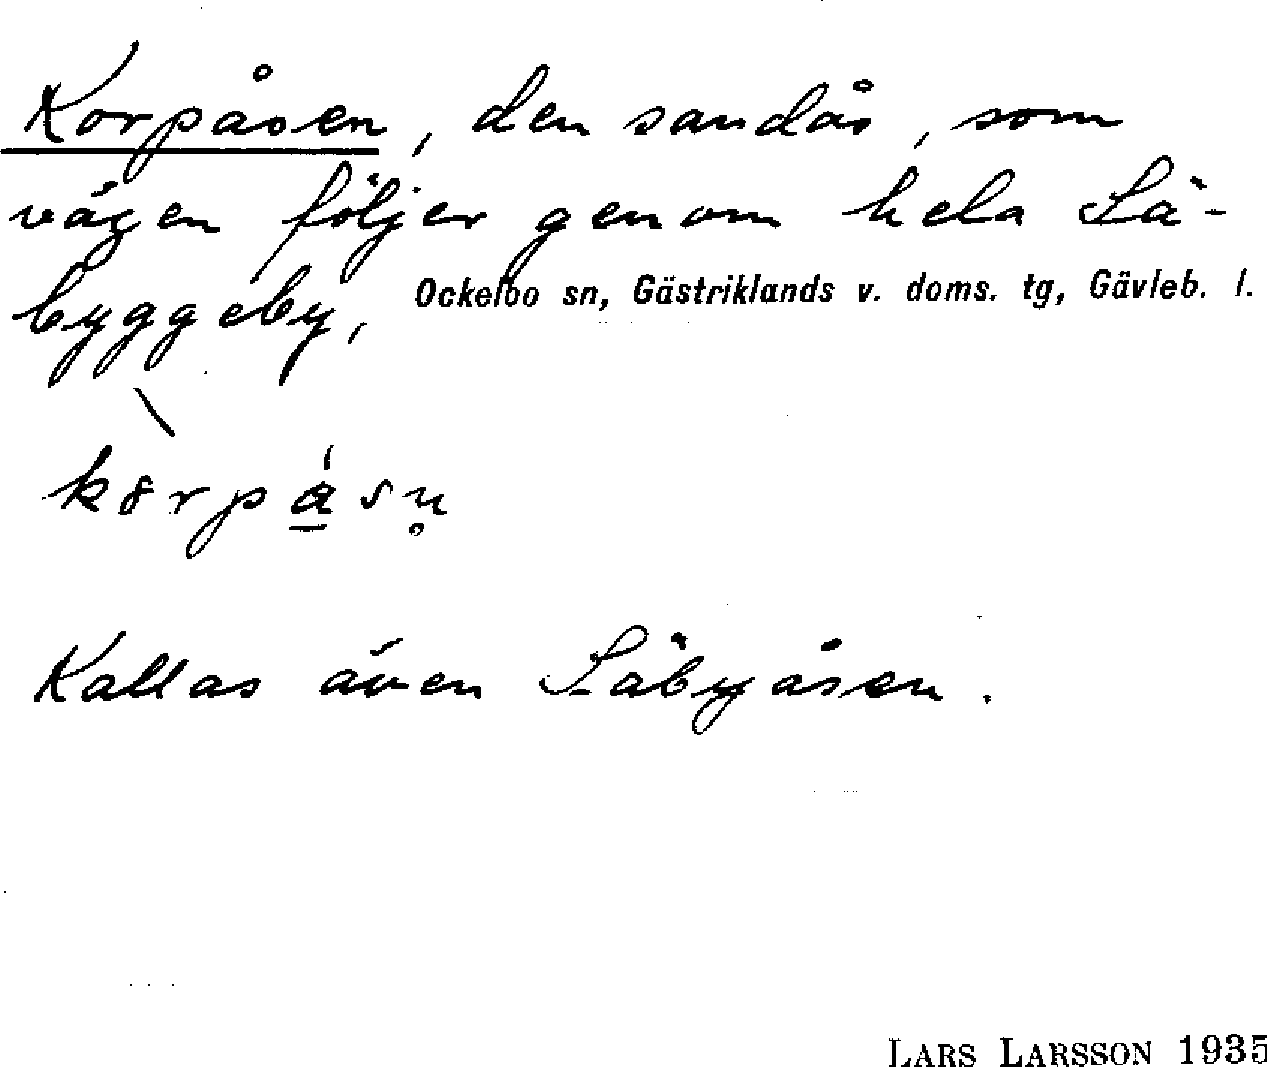 Korpåsen, den sandås, som
vägen följer genom hela Sä-
byggeby,
Ockelbo sn, Gästriklands v. doms. tg, Gävleb. l.
Kallas även Säbyåsen.
LARS LARSSON 1935